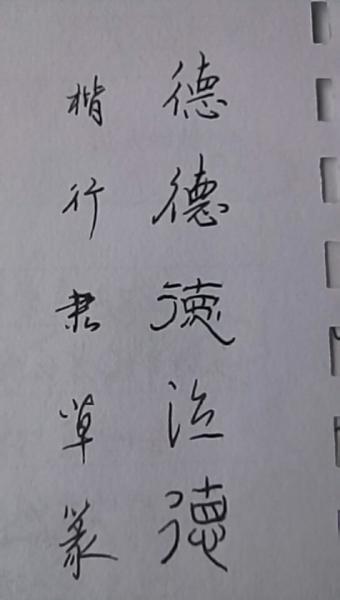 楷 德
行 德
隶 德
草 德
篆 德